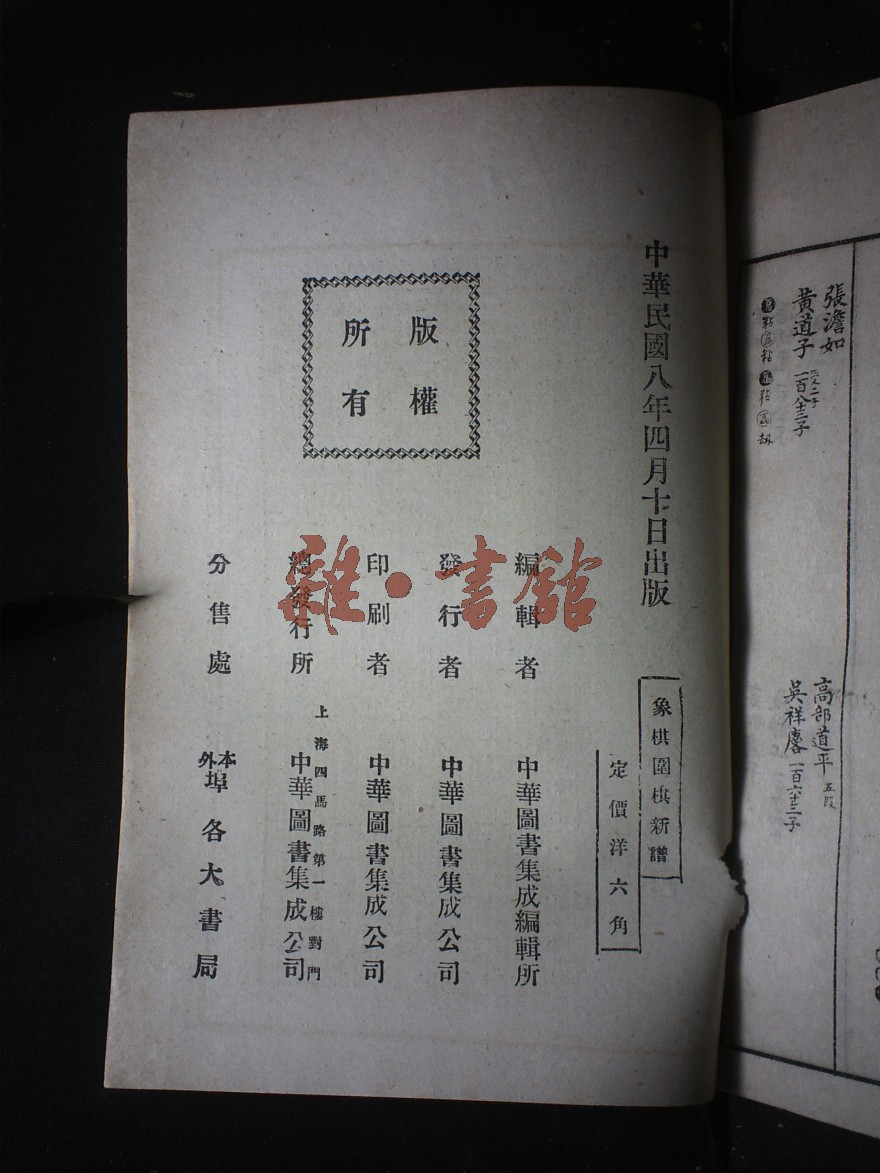 張澹如
黃道子 受二子 一百八十三子
高部道平 五段
吳祥麐 一百六十三子
中華民國八年四月十日出版
象棋圍棋新譜
定價洋六角
版權
所有
編輯者 中華圖書集成編輯所
發行者 中華圖書集成公司
印刷者 中華圖書集成公司
上海四馬路第一樓對門
總發行所 中華圖書集成公司
分售處 本外埠各大書局
雜·書館